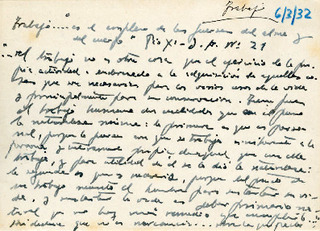 Trabajo
6/3/32
Trabajo... es el empleo de las fuerzas del alma y
del cuerpo" Pio XI - Q. A. Nº 21
...el trabajo no es otra cosa que el ejercicio de la pro
pia actividad enderezado a la adquisición de aquellas co
sas que son necesarias para los varios usos de la vida
y principalmente para su conservación.
el trabajo humano dos cualidades que en él puso
la naturaleza misma: la primera es que es perso
nal, porque la fuerza con que se trabaja es inherente a la
persona, y enteramente propia de aquel que con ella
trabaja, y para utilidad de él se la dio la naturaleza:
la segunda es que es necesario, porque del fruto de
su trabajo necesita el hombre para sustentar su vi
da, y sustentar la vida es deber primario na
tural que no hay más remedio que cumplir